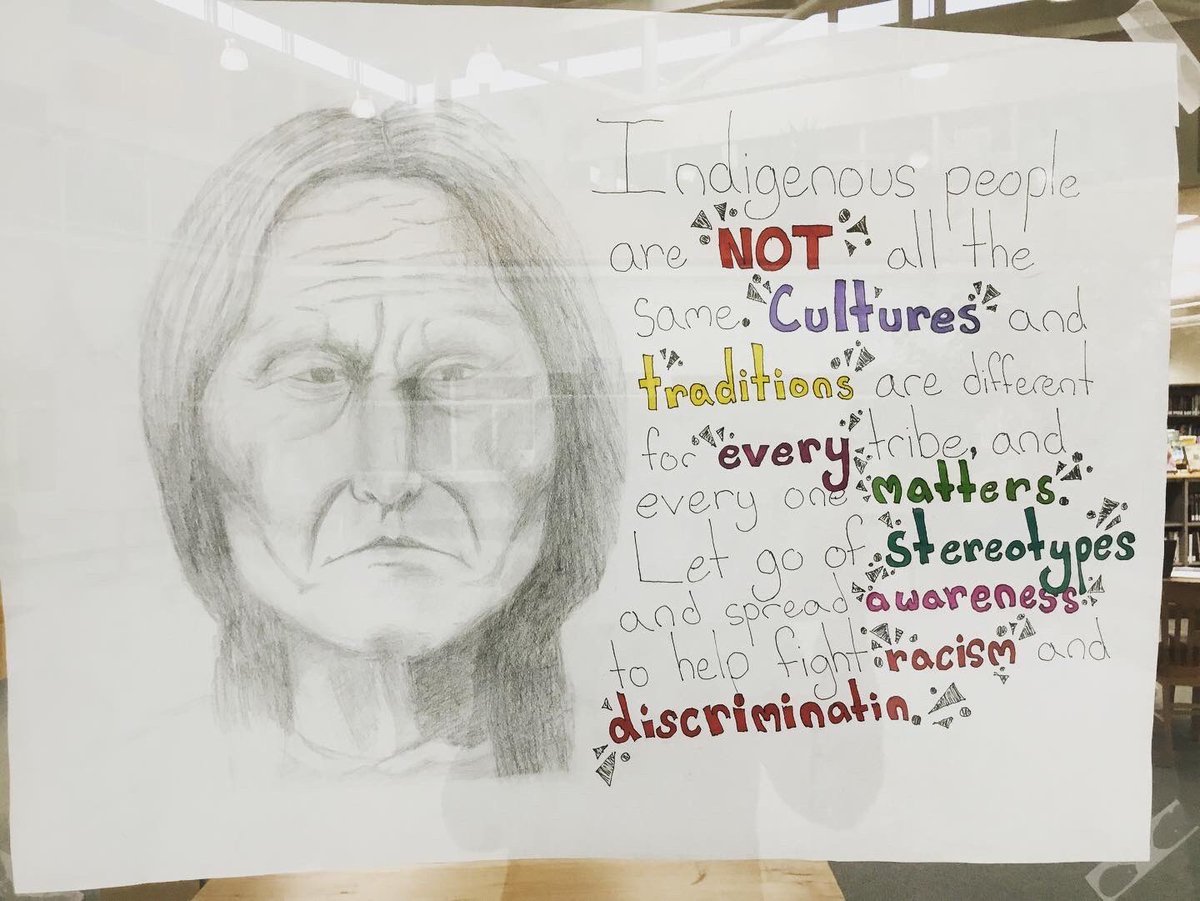 Indigenous people
are NOT all the
same. Cultures and
traditions are different
for every tribe, and
every one matters.
Let go of stereotypes
and spread awareness
to help fight racism and
discriminatin.